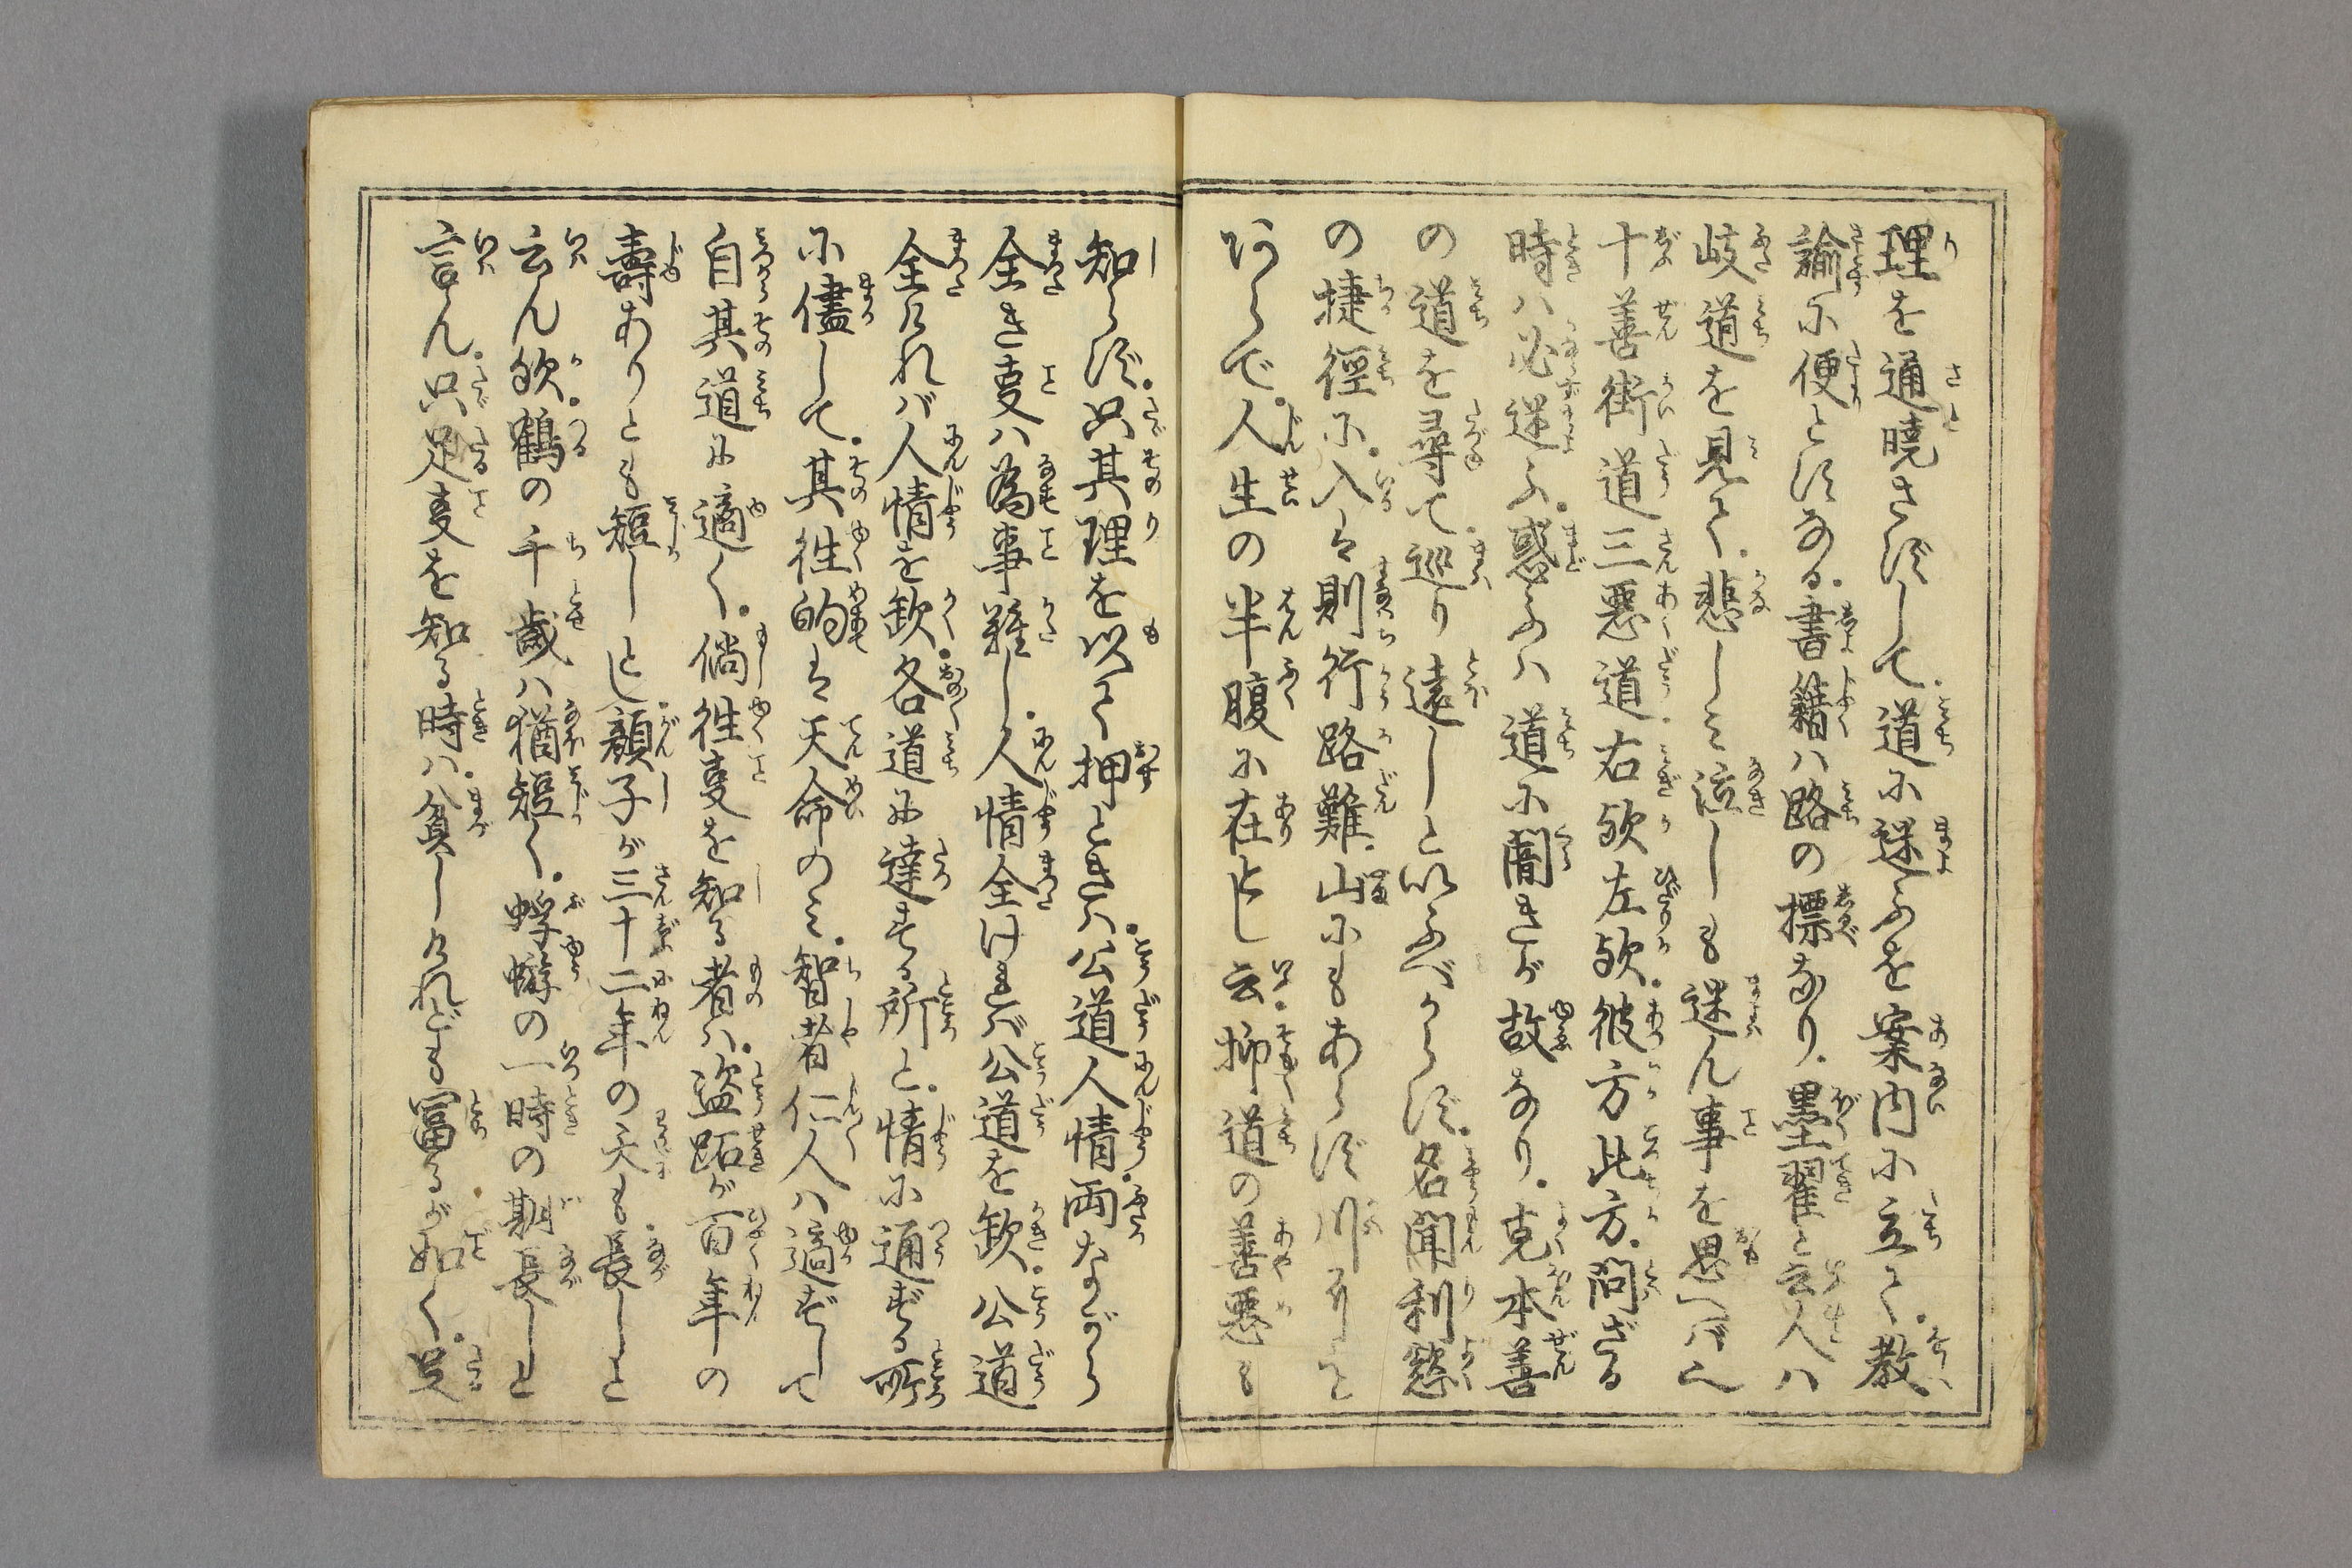 理を通暁さずして道に迷ふを案内に立て。教
諭に便とすなる。書籍ハ路の標なり。墨翟と云人ハ
岐道を見て。悲しミ泣しも迷ん事を思へバ也
十善街道三悪道。右欤左欤。彼方此方。問ざる
時ハ必迷ふ。惑ふハ道に闇きが故なり。克本善
の道を尋て。巡り遠しと以ふべからず。名聞利慾
の捷徑に。入は則行路難。山にもあらず川
あらで。人生の半腹に在とし云。抑道の善悪も
知らず。只其理を以て押ときハ。公道人情両ながら
全き事ハ為事難し。人情全ければ公道を欽。公道
全ければ人情を欽。各道に達する所と。情に通ずる所
に儘して。其徃的は天命のミ。智者仁人ハ適ずして
自其道に適く。倘徃事を知る者ハ。盗跖が百年の
壽ありとも短しとし。顔子が三十二年の夭も。長しと
云ん欤。鶴の千歳ハ猶短く。蜉蝣の一時の期長しと
言ん。只足事を知る時ハ。貧しけれども冨るが如く。足